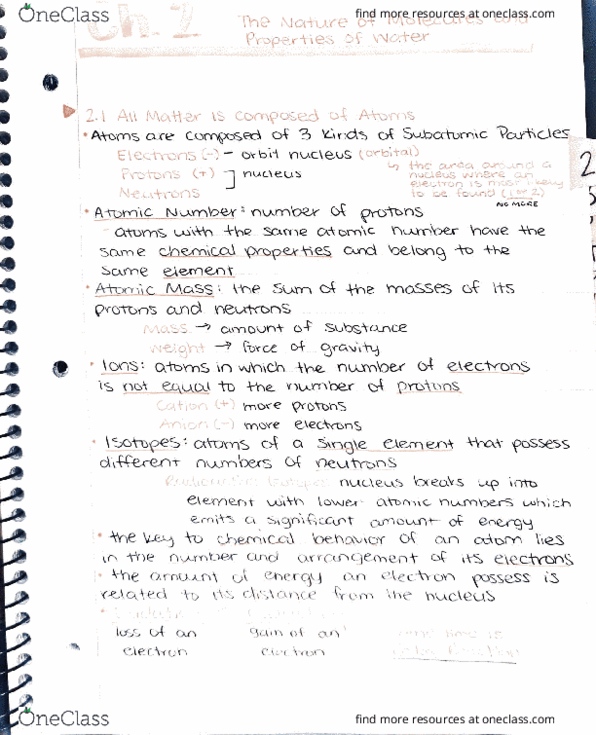 OneClass
find more resources at oneclass.com
Ch. 2
The Nature of Molecules and
Properties of Water
2.1 All Matter is Composed of Atoms
• Atoms are composed of 3 kinds of Subatomic Particles
Electrons (-) – orbit nucleus (orbital)
Protons (+) ] nucleus
Neutrons
↳ the area around a
nucleus where an
electron is most likely
to be found (1 or 2)
NO MORE
2
5
• Atomic Number: number of protons
- atoms with the same atomic number have the
same chemical properties and belong to the
same element
• Atomic Mass: the sum of the masses of its
protons and neutrons
Mass → amount of substance
Weight → force of gravity
• Ions: atoms in which the number of electrons
is not equal to the number of protons
Cation (+) more protons
Anion (-) more electrons
• Isotopes: atoms of a single element that possess
different numbers of neutrons
Radioactive Isotope: nucleus breaks up into
element with lower atomic numbers which
emits a significant amount of energy
• the key to chemical behavior of an atom lies
in the number and arrangement of its electrons
• the amount of energy an electron possess is
related to its distance from the nucleus
loss of an
electron
gain of an
electron
OneClass
find more resources at oneclass.com